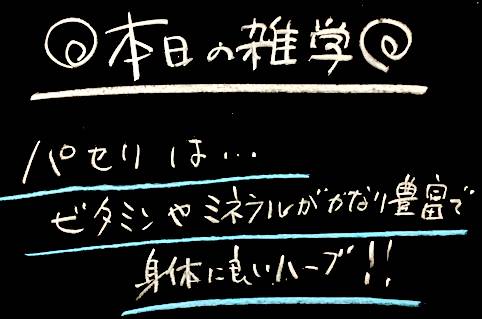 本日の雑学
パセリは…
ビタミンやミネラルがかなり豊富で
身体に良いハーブ!!